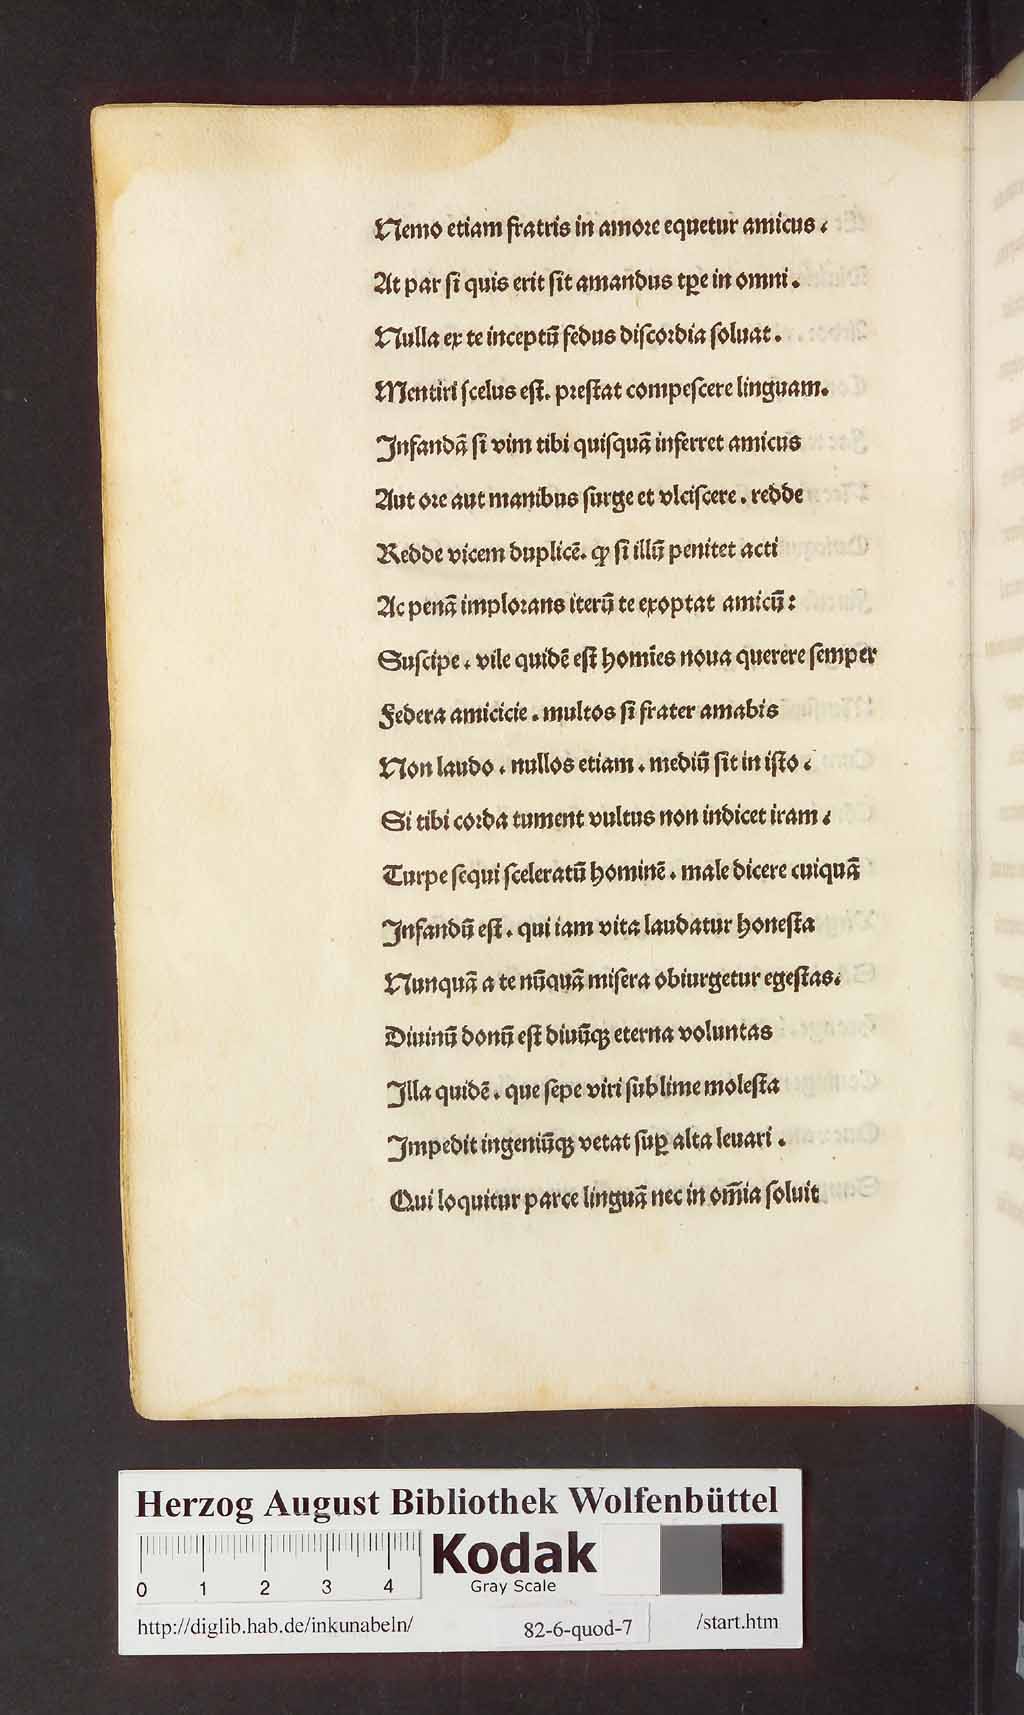 Nemo etiam fratris in amore equetur amicus.
At par si quis erit sit amandus tꝑe in omni.
Nulla ex te inceptū fedus discordia soluat.
Mentiri scelus est. prestat compescere linguam.
Infandā si vim tibi quisquā inferret amicus
Aut ore aut manibus surge et vlciscere. redde
Redde vicem duplicē. ꝙ si illū penitet acti
Ac penā implorans iterū te exoptat amicū:
Suscipe. vile quidē est homīes noua querere semper
Federa amicicie. multos si frater amabis
Non laudo. nullos etiam. mediū sit in isto.
Si tibi corda tument vultus non indicet iram.
Turpe sequi sceleratū hominē. male dicere cuiquā
Infandū est. qui iam vita laudatur honesta
Nunquā a te nūquā misera obiurgetur egestas.
Diuinū donū est diuūqꝫ eterna voluntas
Illa quidē. que sepe viri sublime molesta
Impedit ingeniūqꝫ vetat suꝑ alta leuari.
Qui loquitur parce linguā nec in om̄ia soluit
Herzog August Bibliothek Wolfenbüttel
0 1 2 3 4
Kodak
Gray Scale
http://diglib.hab.de/inkunabeln/ 82-6-quod-7 /start.htm